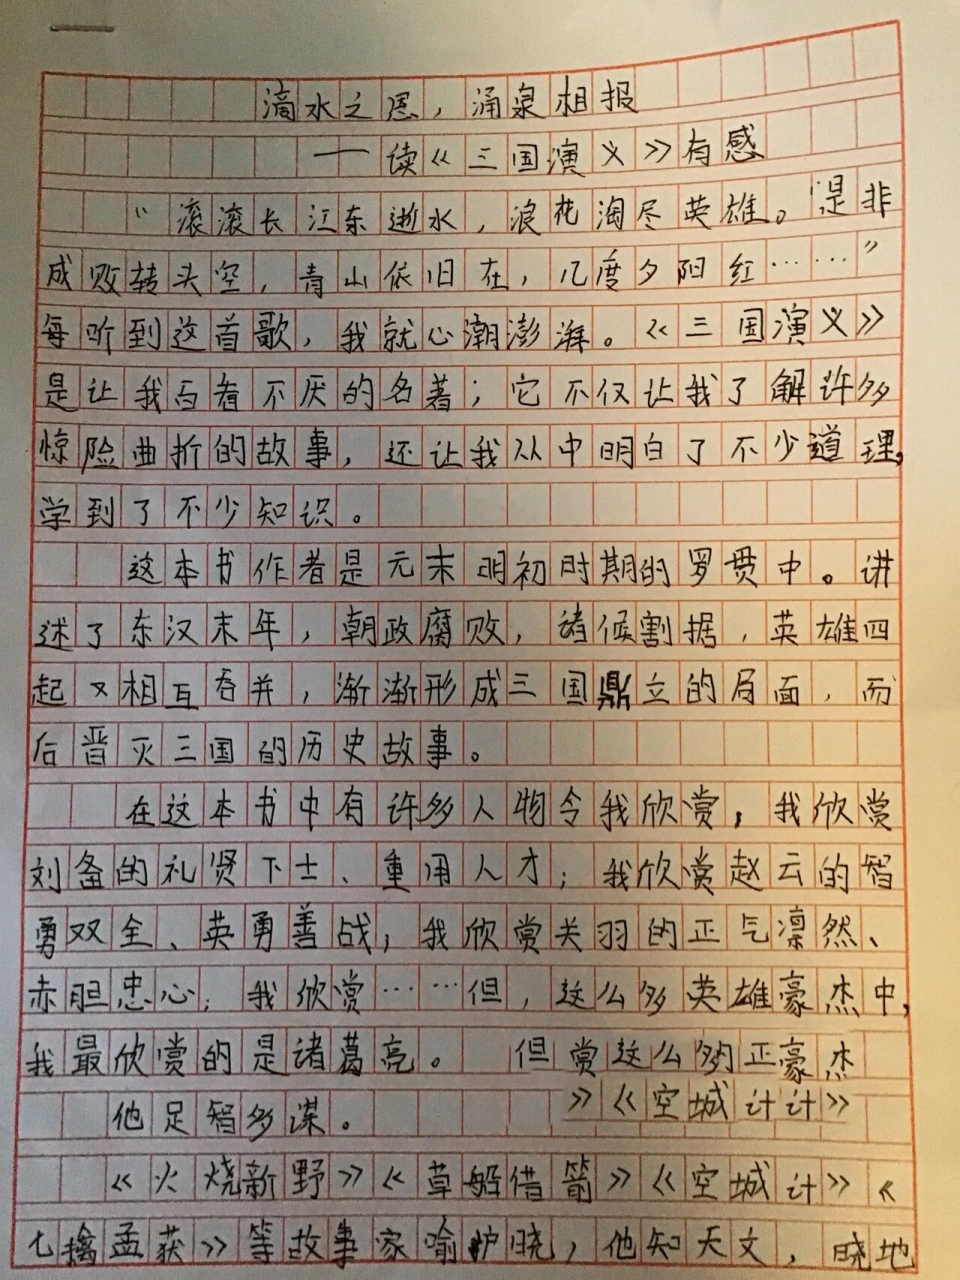 滴水之恩，涌泉相报
——读《三国演义》有感
“滚滚长江东逝水，浪花淘尽英雄。是非
成败转头空，青山依旧在，几度夕阳红……”
每听到这首歌，我就心潮澎湃。《三国演义》
是让我百看不厌的名著；它不仅让我了解许多
惊险曲折的故事，还让我从中明白了不少道理，
学到了不少知识。
这本书作者是元末明初时期的罗贯中。讲
述了东汉末年，朝政腐败，诸候割据，英雄四
起又相互吞并，渐渐形成三国鼎立的局面，而
后晋灭三国的历史故事。
在这本书中有许多人物令我欣赏，我欣赏
刘备的礼贤下士、重用人才；我欣赏赵云的智
勇双全、英勇善战；我欣赏关羽的正气凛然、
赤胆忠心；我欣赏……但，这么多英雄豪杰中，
我最欣赏的是诸葛亮。 但赏这么多的正豪杰
他足智多谋。 》《空城计计》
《火烧新野》《草船借箭》《空城计》《
七擒孟获》等故事家喻户晓，他知天文，晓地